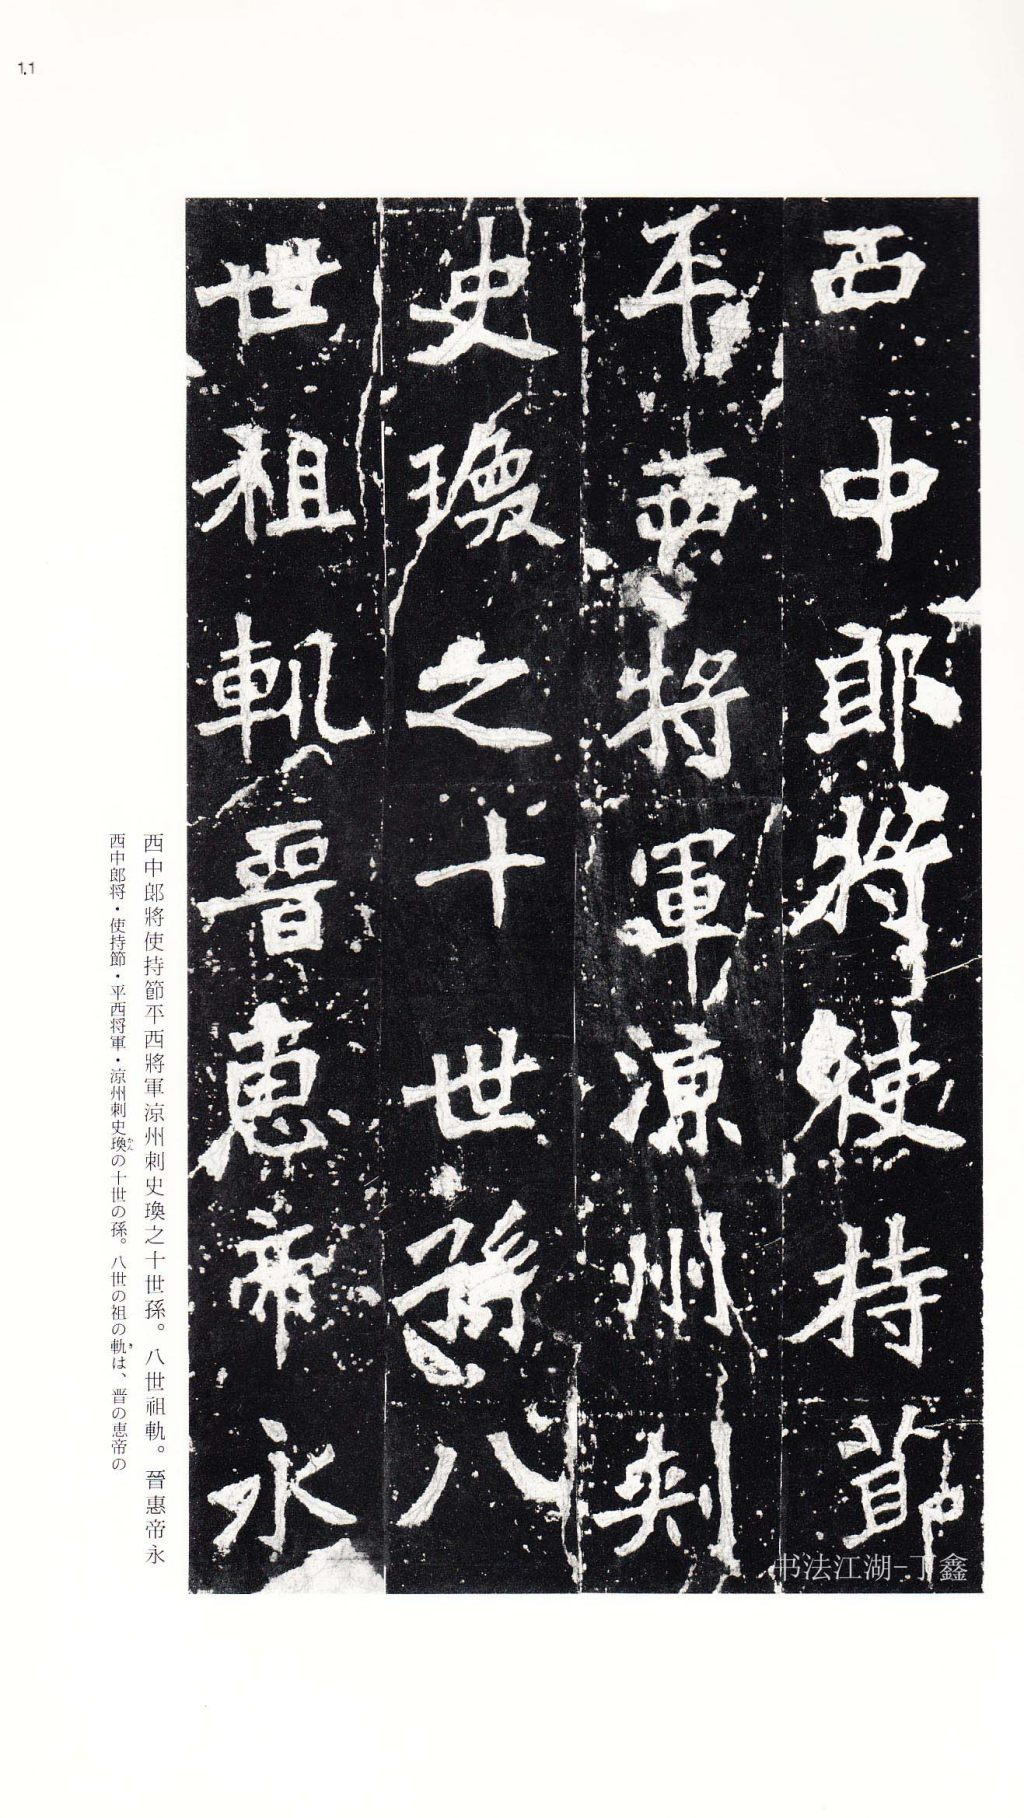 11
西中郎將使持節
平西將軍涼州刺
史瑍之十世孫八
世祖軌晉惠帝永
西中郎將使持節平西將軍涼州刺史瑍之十世孫。八世祖軌。晉惠帝永
西中郎将・使持節・平西将軍・涼州刺史瑍の十世の孫。八世の祖の軌は、晋の恵帝の
かん
き
书法江湖-丁鑫